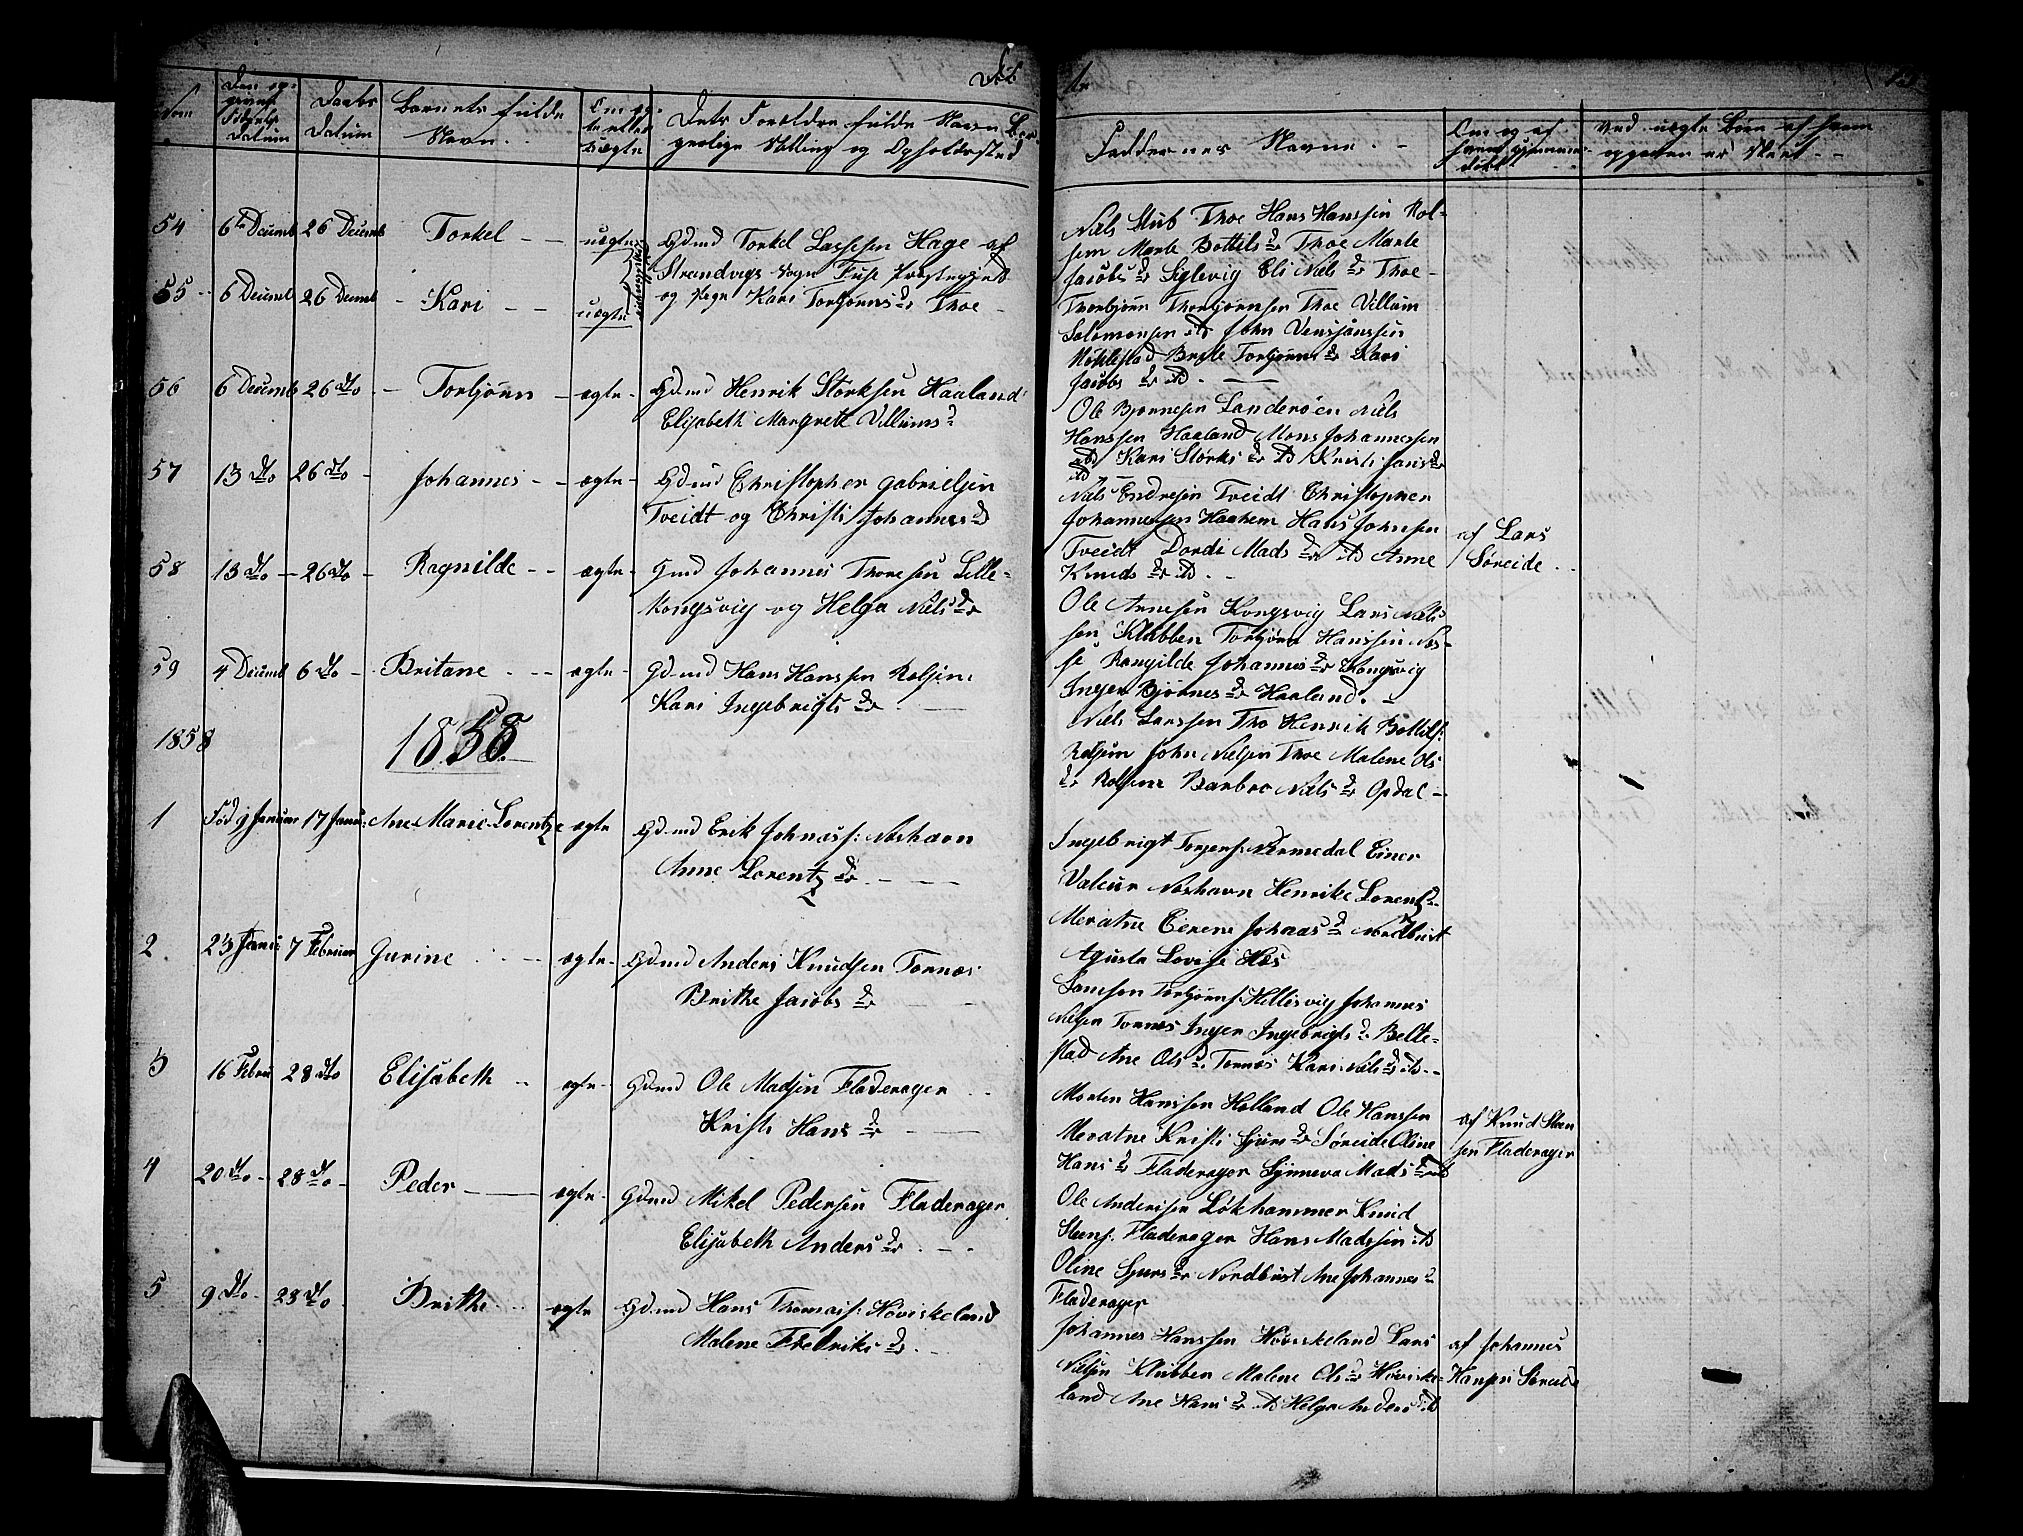 Døb
te
Num
Den op-
givne
Fødsels
Datum
Daabs
Datum
Barnets fulde
Navn.
Om æg-
te eller
Uægte
Dets Foreldre fulde Navn Bor-
gerlige Stilling og Opholdssted
Faddernes Navne.
Om og af
hvem
døbt
Ved uægte Børn af hvem
opgaven er skeet.
54 6te Decemb 26 Decemb Torkel uægte Gdmd Torkel Lassesen Hage af
Strandvigs Sogn Fuse Prestegjeld
55 6 Decemb 26 Decemb Kari uægte og Pige Kari Torbjørns Dr Thoe
Niels Stub Thoe Hans Hanssen Rol-
sem Marte Bottels Dr Thoe Marte
Jacobs Dr Siglevig Eli Niels Dr Thoe
Thorbjørn Thorbjørnsen Thoe Villum
Salomonsen ibd John
Brite Torbjørns Dr Kari
Jacobs Dr ibd.
56 6 Decemb 26 Dto Torbjørn ægte Gdmd Henrik Størksen Haaland
Elisabeth Margrett Villums D
Ole Bjørnesen Sanderøen Niels
Hanssen Haaland Mons Johannessen
ibd Kari Størks Dr ibd Kristi Hans Dr
ibd
57 13 Dto 26 Dto Johannes ægte Gdmd Christopher Gabrielsen
Tveidt og Christi Johannes D
Niels Endresen Tveidt Christopher
Johannessen Haahem Hans Johnsen
Tveidt Dordi Mads Dr ibd Anne
Knuds Dr ibd.
af Lars
Søreide
58 13 Dto 26 Dto Ragnilde ægte Gmd Johannes Thoresen Lille-
Kongsvig og Helga Niels Dr
Ole Arnesen Kongsvig Lars Niels
sen Klubben Torbjørn Hanssen Næs-
se Rangilde Johannes Dr Kongsvig
Inger Bjørnes Dr Haaland.
59 4 Decemb 6 Dto Britane ægte Gdmd Hans Hanssen Rolsem
Kari Ingebrigts Dr
Niels Larssen Tho Henrik Bottels:
Rolsem John Nielsen Thoe Malene Ols
Dr Rolsem Barbro Niels Dr Opdal
1858 1858.
1 Fød 9 Januar 17 Janu: Ane Marie Lorentze ægte Gdmd Erik Johnass: Noshavn
Anne Lorentz Dr.
Ingebrigt Torgers: Vermedal Einer
Valeur Noshavn Henrike Lorentz D
Meratne Eerene Johnas D Nordbust
Aguste Lovise Hes
2 23 Janu 7 Februar Gurine ægte Gdmd Anders Knudsen Tornæs
Brithe Jacobs Dr
Samson Torbjørns: Hillesvig Johannes
Nielsen Tornæs Inger Ingebrigts D Belte-
stad Ane Ols D Tornæs Kari Niels D ibd
3 16 Febru 28 Dto Elisabeth ægte Gdmd Ole Madsen Fladerager
Kristi Hans Dr
Morten Hanssen Holland Ole Hanssen
Meratne Kristi Sjurs Dr Søreide Oline
Hans Dr Fladerager Synneva Mads D ibd
af Knud Steen
sen Fladerager
4 20 Dto 28 Dto Peder ægte Gdmd Mikel Pedersen Fladerager
Elisabeth Anders Dr.
Ole Anderssen Løkhammer Knud
Steens. Fladerager Hans Madssen ibd
Oline Sjurs Dr Nordbust Ane Johannes D
Fladerager
5 9 Dto 28 Dto Brithe ægte Gdmd Hans Thomass: Høviskeland
Malene Fredriks D.
Johannes Hanssen Høviskeland Lars
Nielsen Klubben Malene Ols Dr Høviske-
land Ane Hans Dr ibd Helga Anders D ibd
af Johannes
Hansen Søreide